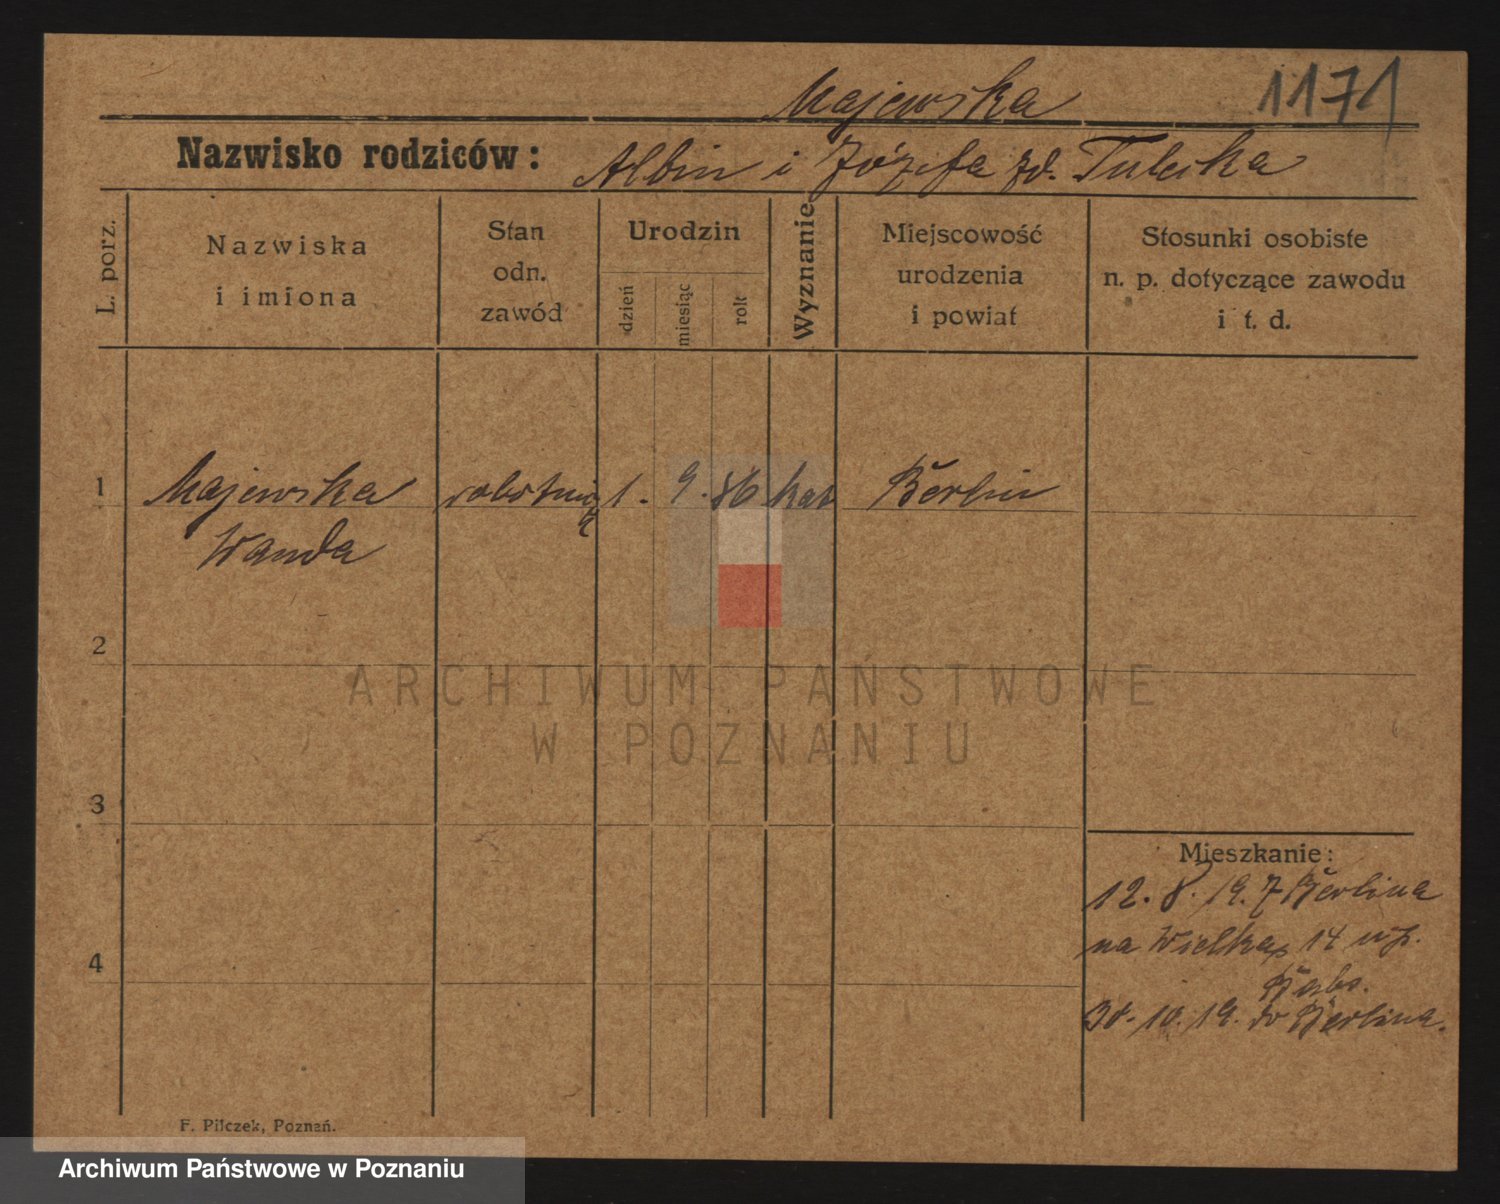 Majewska 1171
Nazwisko rodziców: Albin i Józefa zd. Tulecka
L. porz.
Nazwiska
i imiona
Stan
odn.
zawód
Urodzin
dzień
miesiąc
rok
Wyznanie
Miejscowość
urodzenia
i powiat
Stosunki osobiste
n. p. dotyczące zawodu
i t. d.
1 Majewska robotnica 1. 9. 86 kat Berlin
Wanda
2
ARCHIWUM PAŃSTWOWE
W POZNANIU
3
Mieszkanie:
12. 8. 19. z Berlina
na Wielka 14
4
30. 10. 19. do Berlina.
F. Pilczek, Poznań.
Archiwum Państwowe w Poznaniu